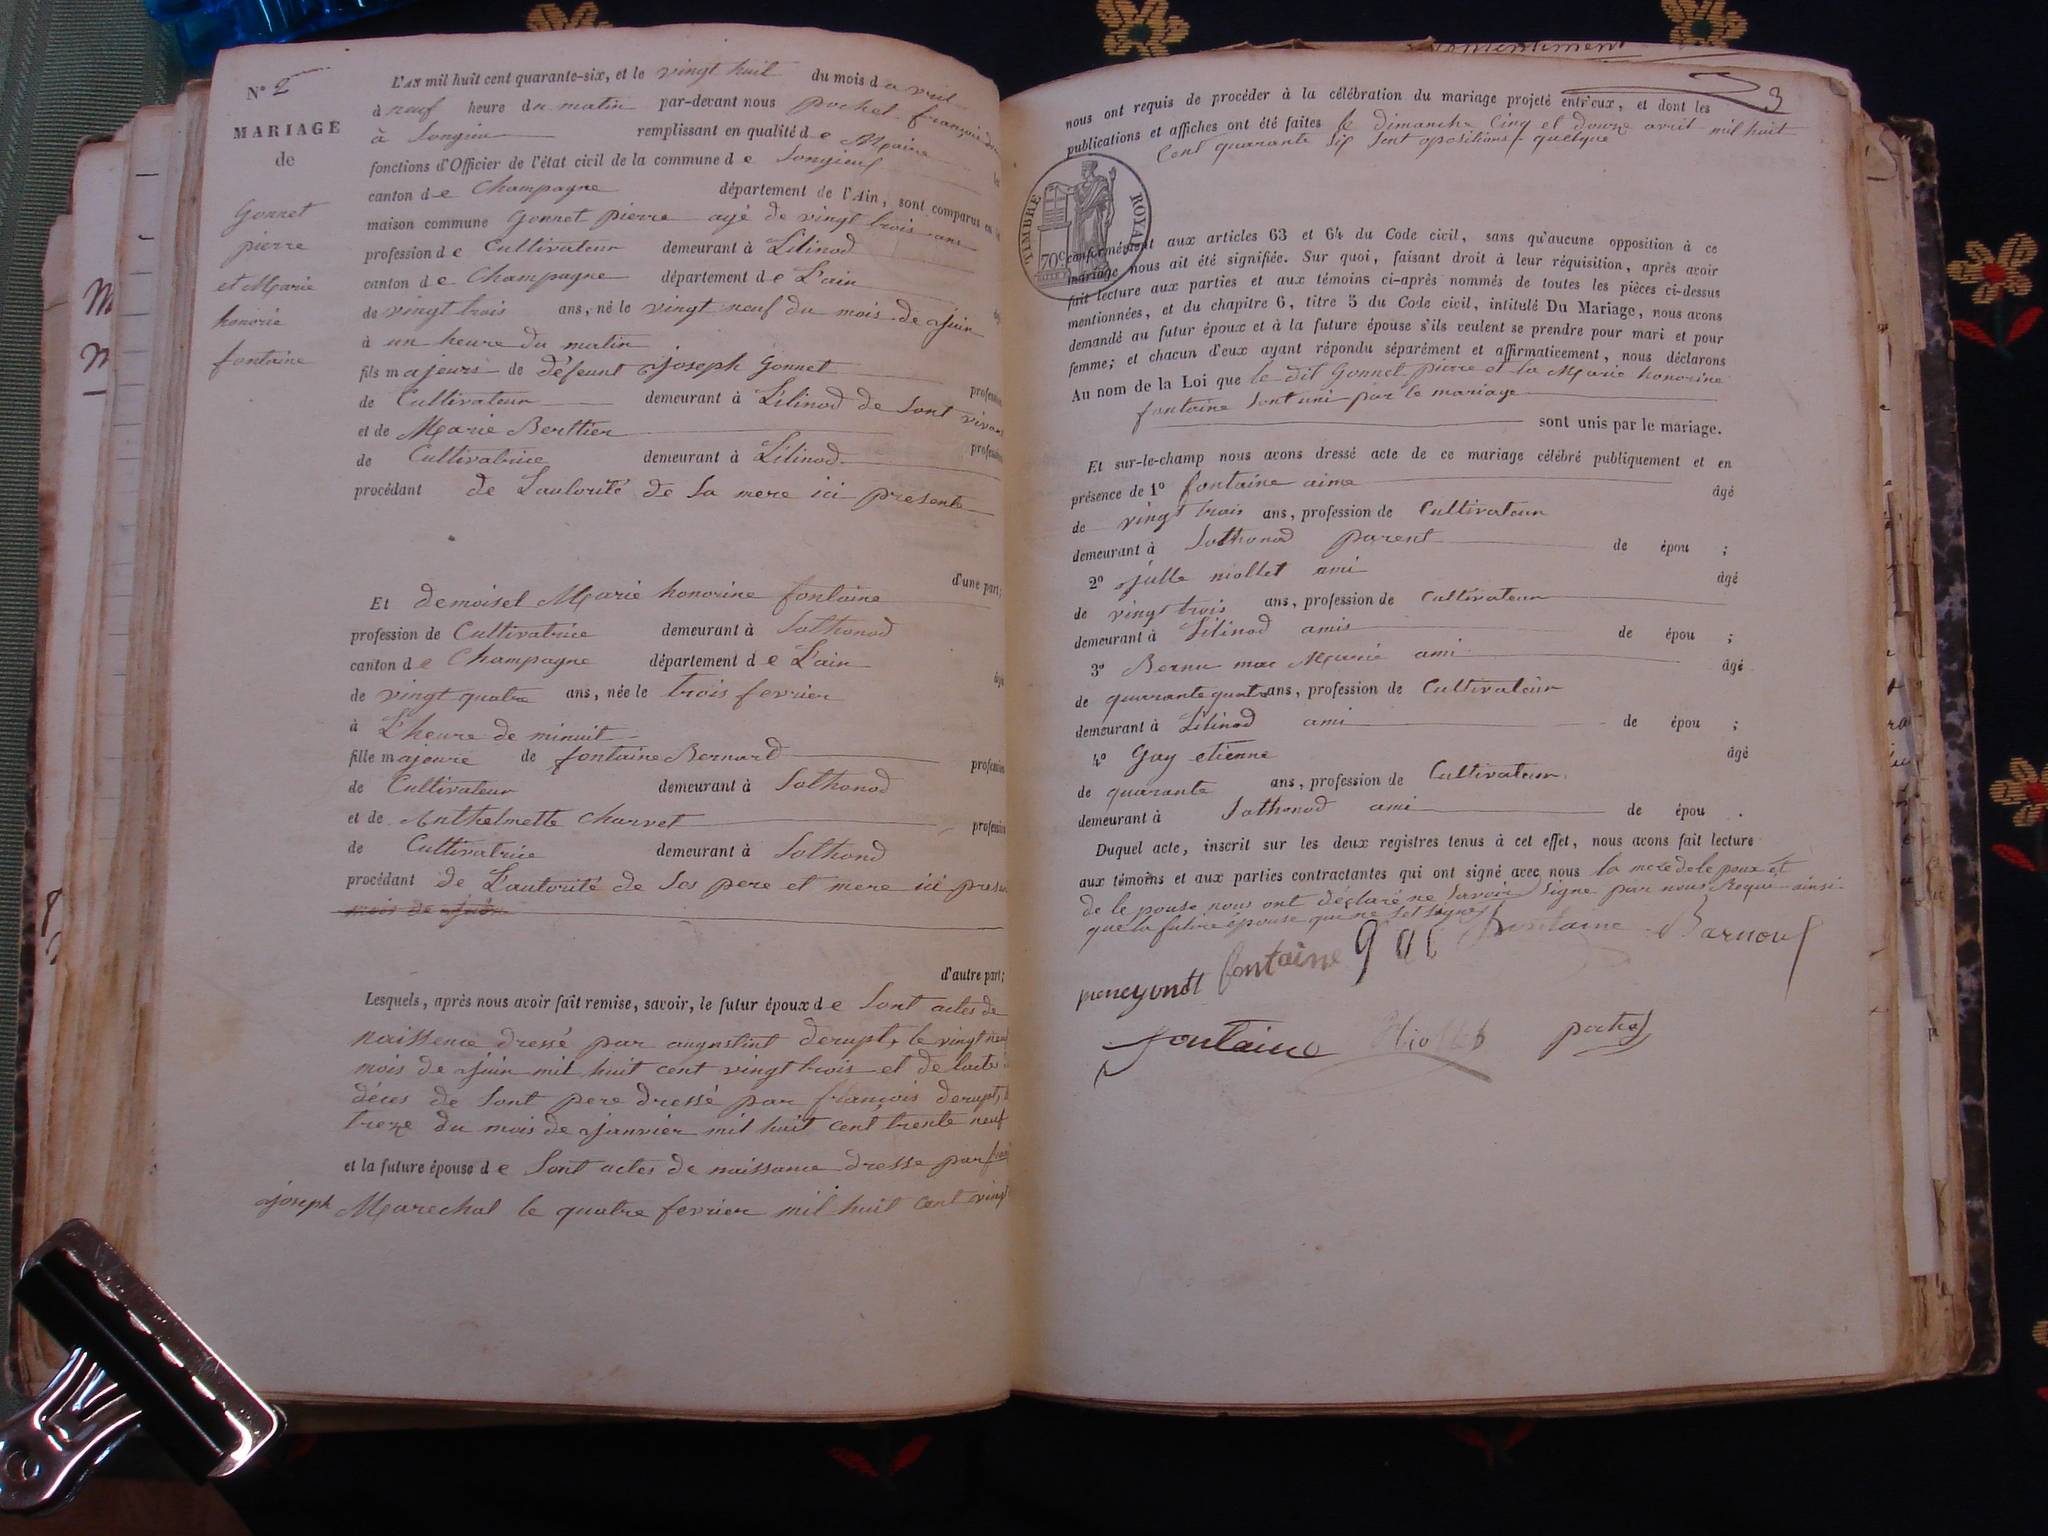 N° 2
MARIAGE
de
Gonnet
pierre
et Marie
honorie
fontaine
L'AN mil huit cent quarante-six, et le vingt huit du mois d avril
à neuf heure du matin par-devant nous pochet françois
à Songieu remplissant en qualité de Maire les
fonctions d'Officier de l'état civil de la commune de Songieu
canton de Champagne département de l'Ain, sont comparus en la
maison commune Gonnet pierre agé de vingt trois ans
profession de Cultivateur demeurant à Lilinod
canton de Champagne département de L'ain
de vingt trois ans, né le vingt neuf du mois de juin
à un heure du matin
fils majeurs de défeunt joseph Gonnet profession
de Cultivateur demeurant à Lilinod de sont vivant
et de Marie Berthier profession
de Cultivatrice demeurant à Lilinod
procédant de L'autorité de sa mere ici presente
d'une part;
Et demoisel Marie honorine fontaine
profession de Cultivatrice demeurant à Sothonod
canton de Champagne département de L'ain
de vingt quatre ans, née le trois fevrier
à L'heure de minuit
fille majeure de fontaine Bernard profession
de Cultivateur demeurant à Sothonod
et de Anthelmette Charvet profession
de Cultivatrice demeurant à Sothond
procédant de L'autorité de ses pere et mere ici presen
mois de juin
d'autre part;
Lesquels, après nous avoir fait remise, savoir, le futur époux de sont actes de
naissence dressé par augustint derupt, le vingt neuf
mois de juin mil huit cent vingt trois et de lacte
déces de sont pere dressé par françois derupt,
treze du mois de janvier mil huit cent trente neuf
et la future épouse de sont actes de naissance dresse par
joseph Marechal le quatre fevrier mil huit cent vingt
3
nous ont requis de procéder à la célébration du mariage projeté entr'eux, et dont les
publications et affiches ont été faites le dimanche Cinq et douze avril mil huit
Cent quarante six sent opositions quelque
TIMBRE ROYAL
70 c
conformément aux articles 63 et 64 du Code civil, sans qu'aucune opposition à ce
mariage nous ait été signifiée. Sur quoi, faisant droit à leur réquisition, après avoir
fait lecture aux parties et aux témoins ci-après nommés de toutes les pièces ci-dessus
mentionnées, et du chapitre 6, titre 5 du Code civil, intitulé Du Mariage, nous avons
demandé au futur époux et à la future épouse s'ils veulent se prendre pour mari et pour
femme; et chacun d'eux ayant répondu séparément et affirmativement, nous déclarons
Au nom de la Loi que le dit Gonnet pierre et la Marie honorine
fontaine sont uni par le mariage
sont unis par le mariage.
Et sur-le-champ nous avons dressé acte de ce mariage célébré publiquement et en
présence de 1° fontaine aime âgé
de vingt trois ans, profession de Cultivateur
demeurant à Sothonod parent de épou ;
2° julle miollet ami âgé
de vingt trois ans, profession de Cultivateur
demeurant à Lilinod amis de épou ;
3° Bernu mar Marie ami âgé
de quarante quatre ans, profession de Cultivateur
demeurant à Lilinod ami de épou ;
4° Gay etienne âgé
de quarante ans, profession de Cultivateur
demeurant à Sothonod ami de épou .
Duquel acte, inscrit sur les deux registres tenus à cet effet, nous avons fait lecture
aux témoins et aux parties contractantes qui ont signé avec nous la mere de le poux et
de le pouse nous ont déclaré ne savoir signe par nous Reque ainsi
que la future épouse qui ne set signe
fontaine gai fontaine
fontaine pochet